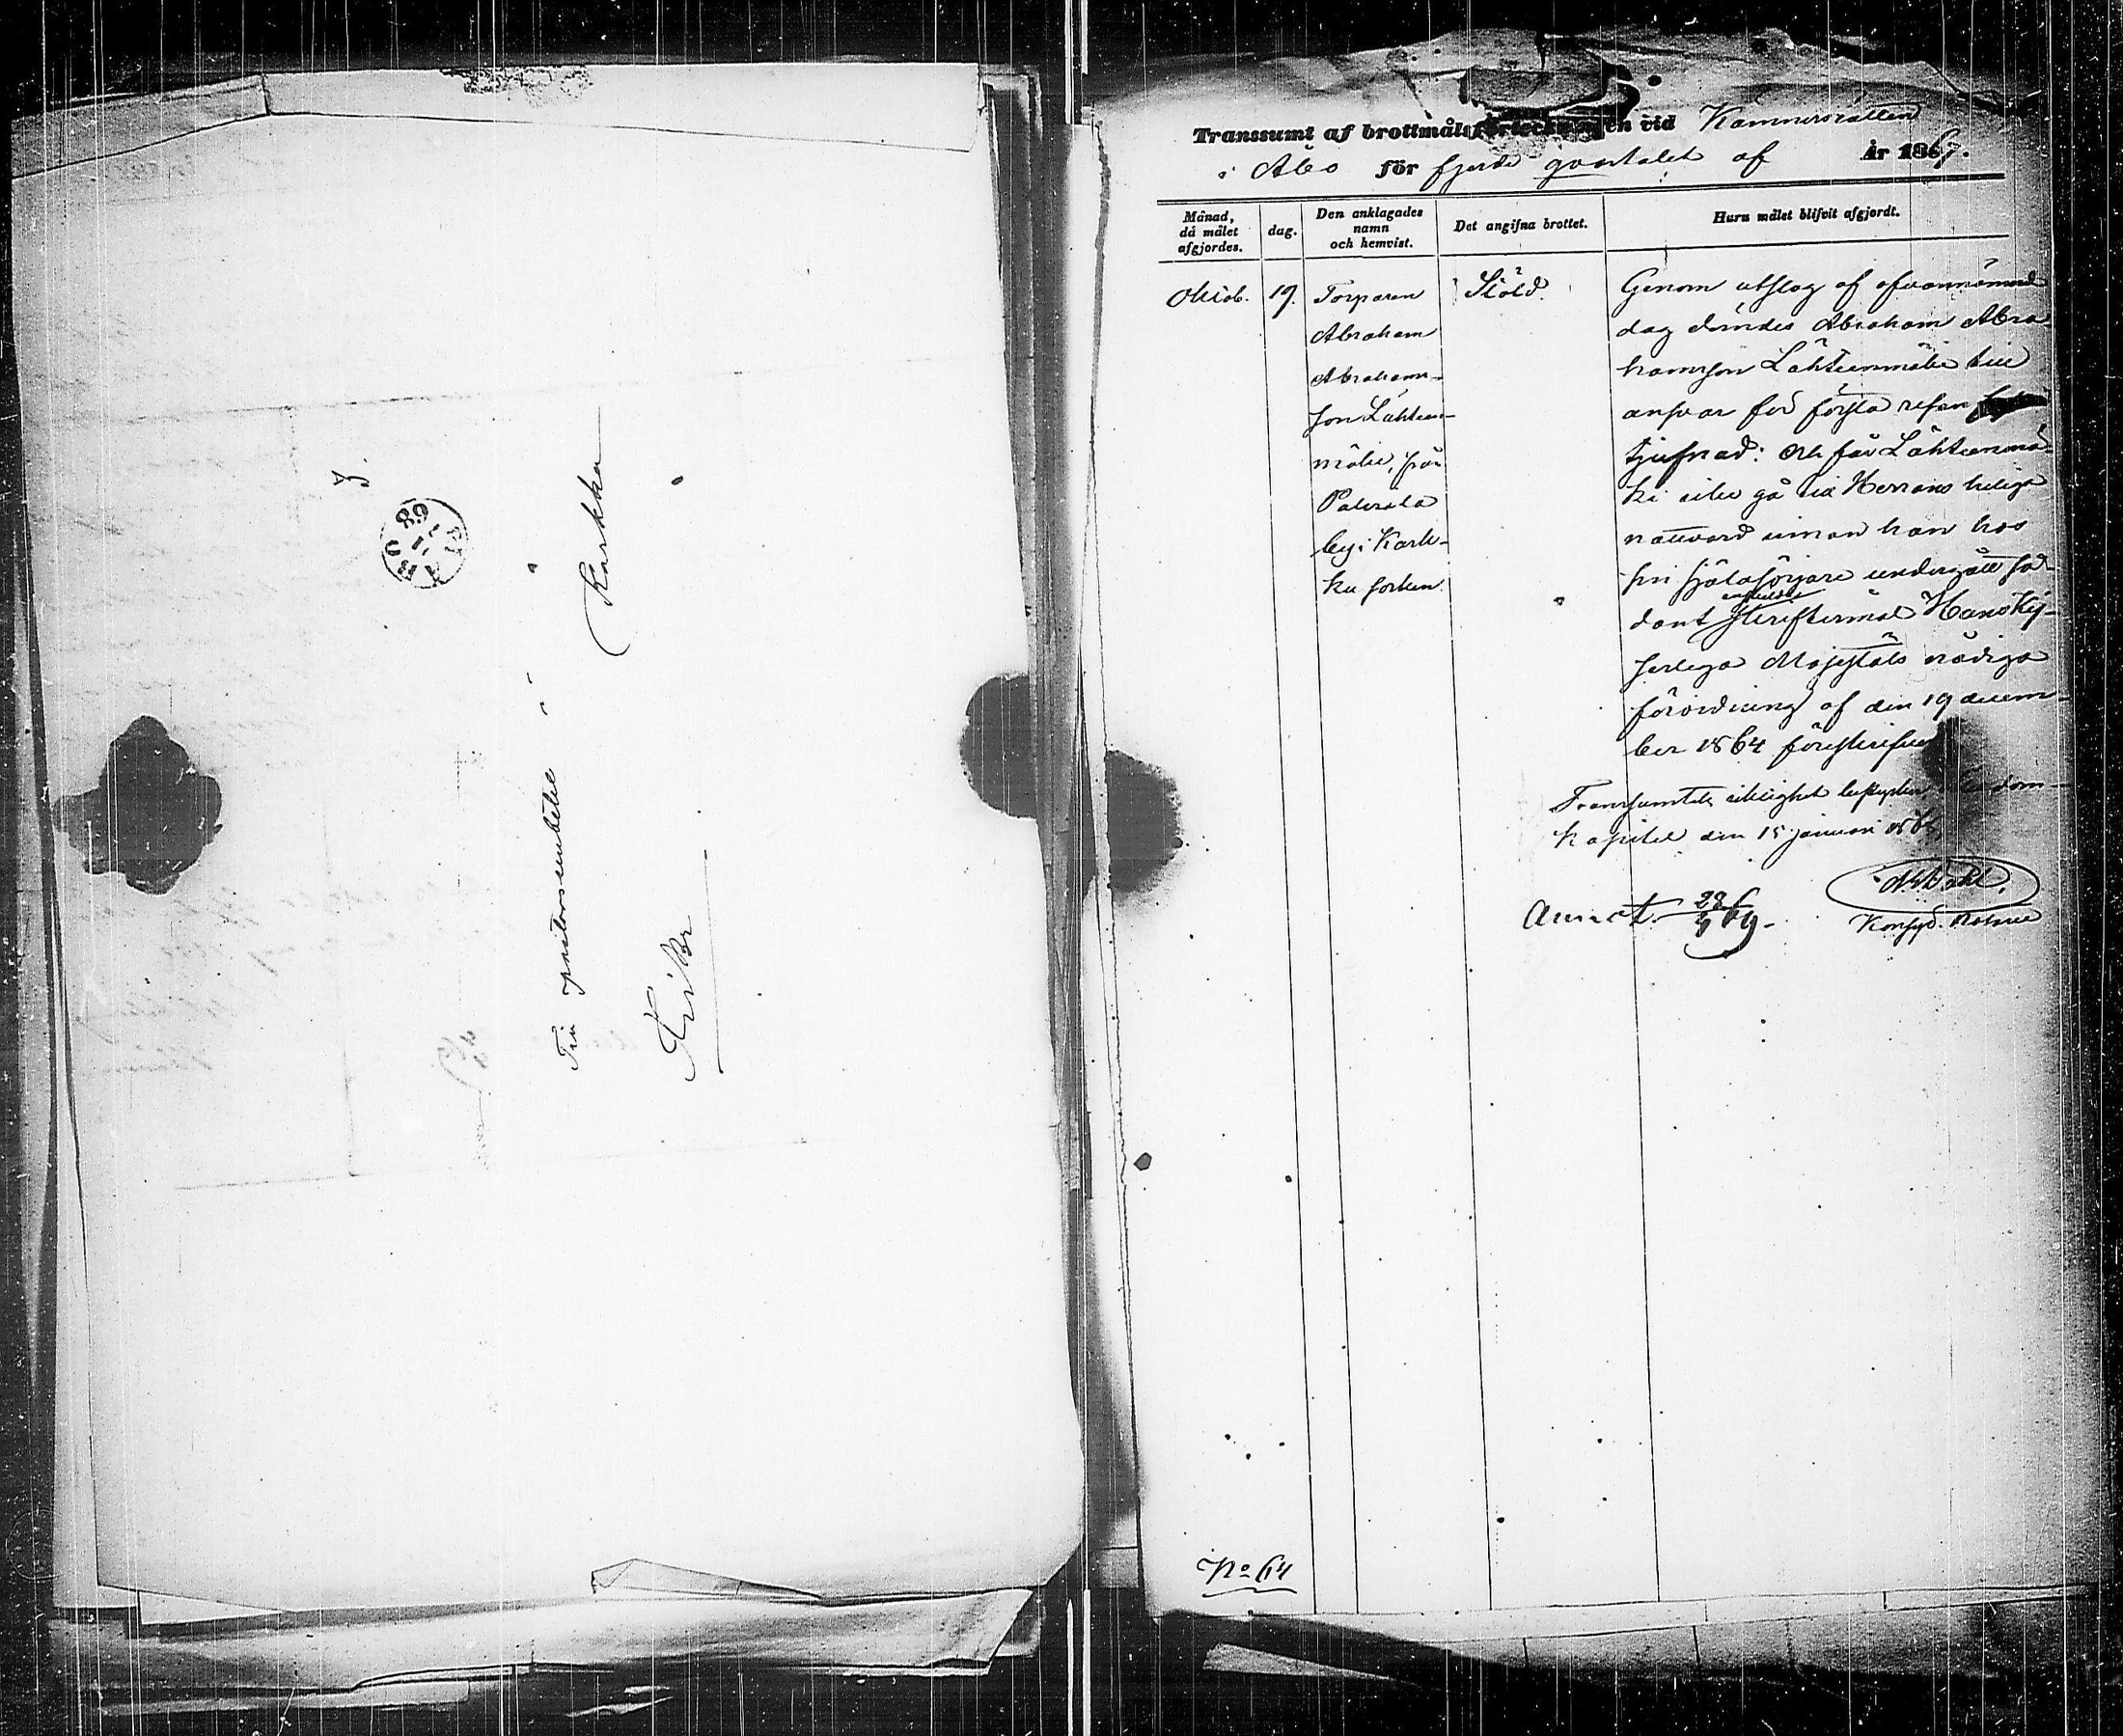 Till pastorsembetet
i
Karkku
Fribr
ÅBO
68
Transsumt af brottmålsförteckningen vid Kämnersrätten
i Åbo för fjerde qvartalet af År 1867.
Månad, då målet afgjordes.
dag.
Den anklagades namn och hemvist.
Det angifna brottet.
Huru målet blifvit afgjordt.
Oktob.
19.
Torparen
Abraham
Abrahams-
son Lähteen-
mäki, från
by i Kark-
ku socken.
Stöld.
Genom utslag af ofvannämnd
dag dömdes Abraham Abra
hamsson Lähteenmäki till
ansvar för första resan
tjufnad: och får Lähteenmä-
ki icke gå till Herrans heliga
nattvard innan han hos
sin själasörjare undergått så-
dant enskildt skriftermål Hans Kej-
serliga Majestäts nådiga
förordning af den 19 decem-
ber 1864 föreskrifver
Transsumtets riktighet betyder dom-
kapitel den 15 januari 186
Annot. 28/4 69.
Konsist. Notarie
No 64